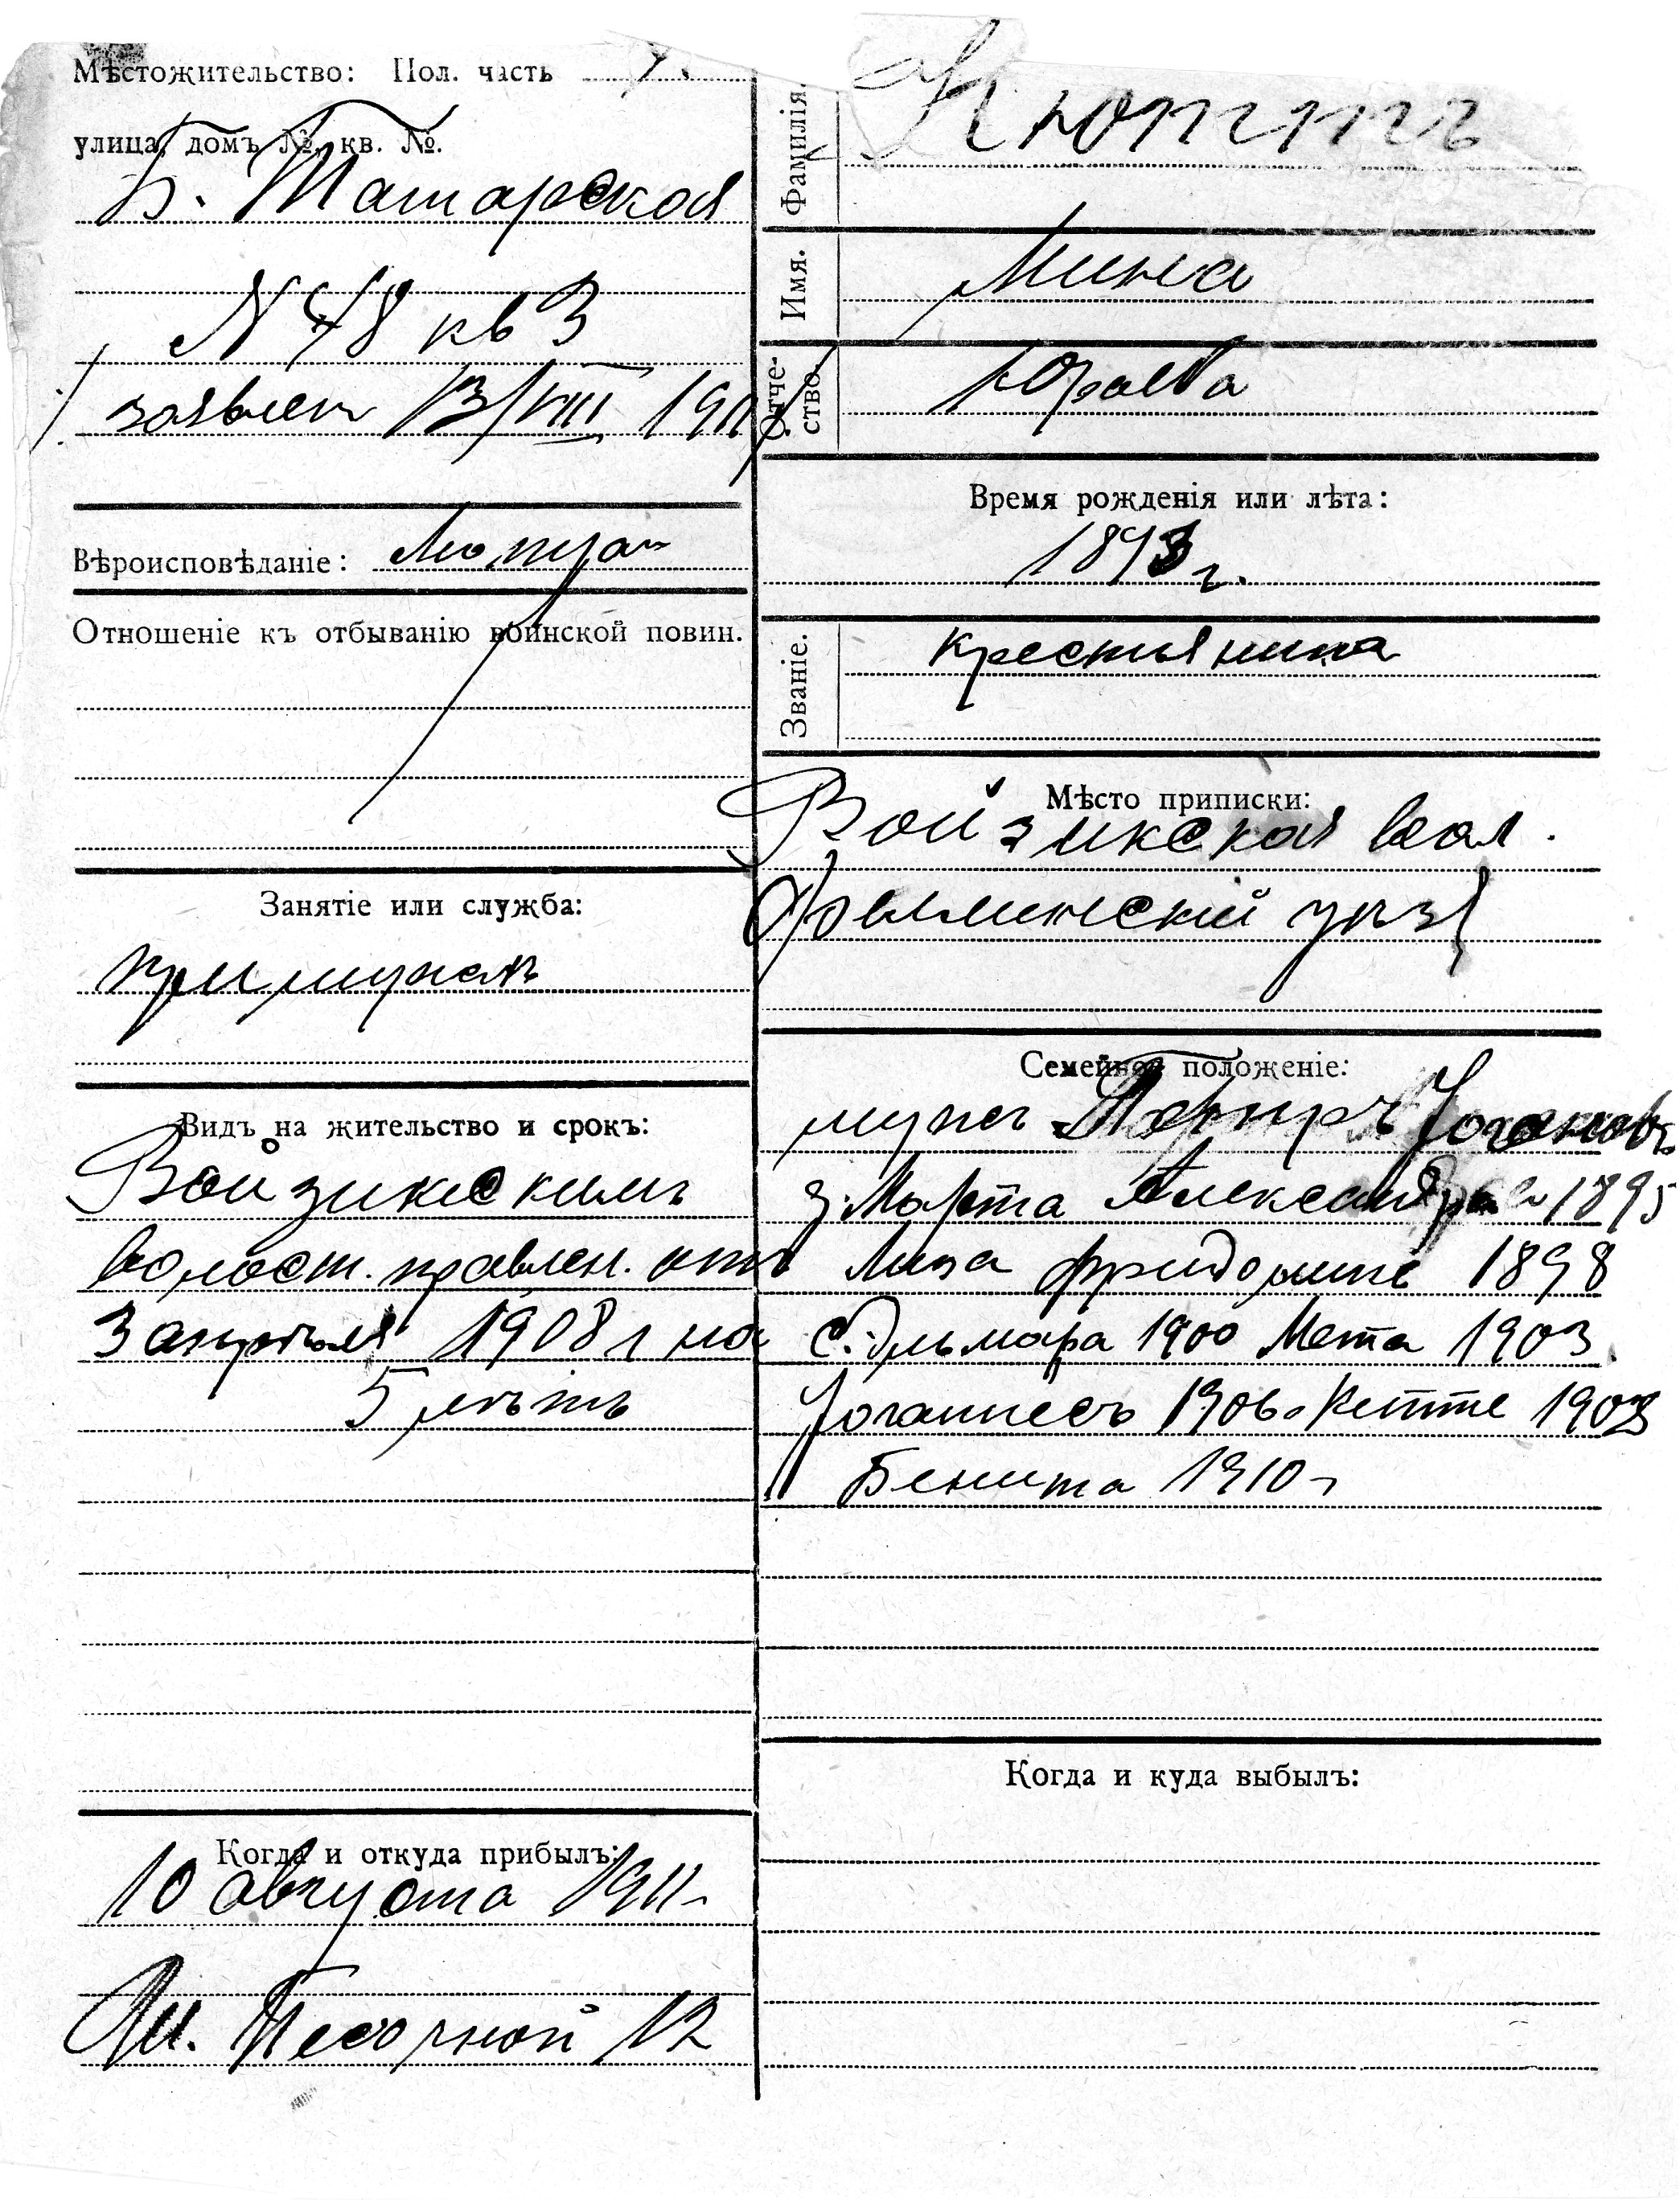 Мѣстожительство: Пол. часть
улица, домъ №, кв. №.
Б. Татарская
N 48 кв 3
заявлен 13/VIII 1911
Вѣроисповѣданіе: Лютер
Отношеніе къ отбыванію воинской повин.
Занятіе или служба:
при мужѣ
Видъ на жительство и срокъ:
Войзикскимъ
волост. правлен. отъ
3 апрѣля 1908 г на
5 лѣтъ
Когда и откуда прибылъ:
10 августа 1911
Песочной 12
Фамилія.
Кюттъ
Имя.
Минна
Отче-
ство.
Юраева
Время рожденія или лѣта:
1873 г.
Званіе.
крестьянка
Мѣсто приписки:
Войзикская вол.
Феллинскій уѣзд
Семейное положеніе:
мужъ Іоганов
Марта Александра 1895
Лиза 1898
Эльмара 1900 Мета 1903
Іоганнесъ 1906. Кетте 1908
Бенита 1910
Когда и куда выбылъ: